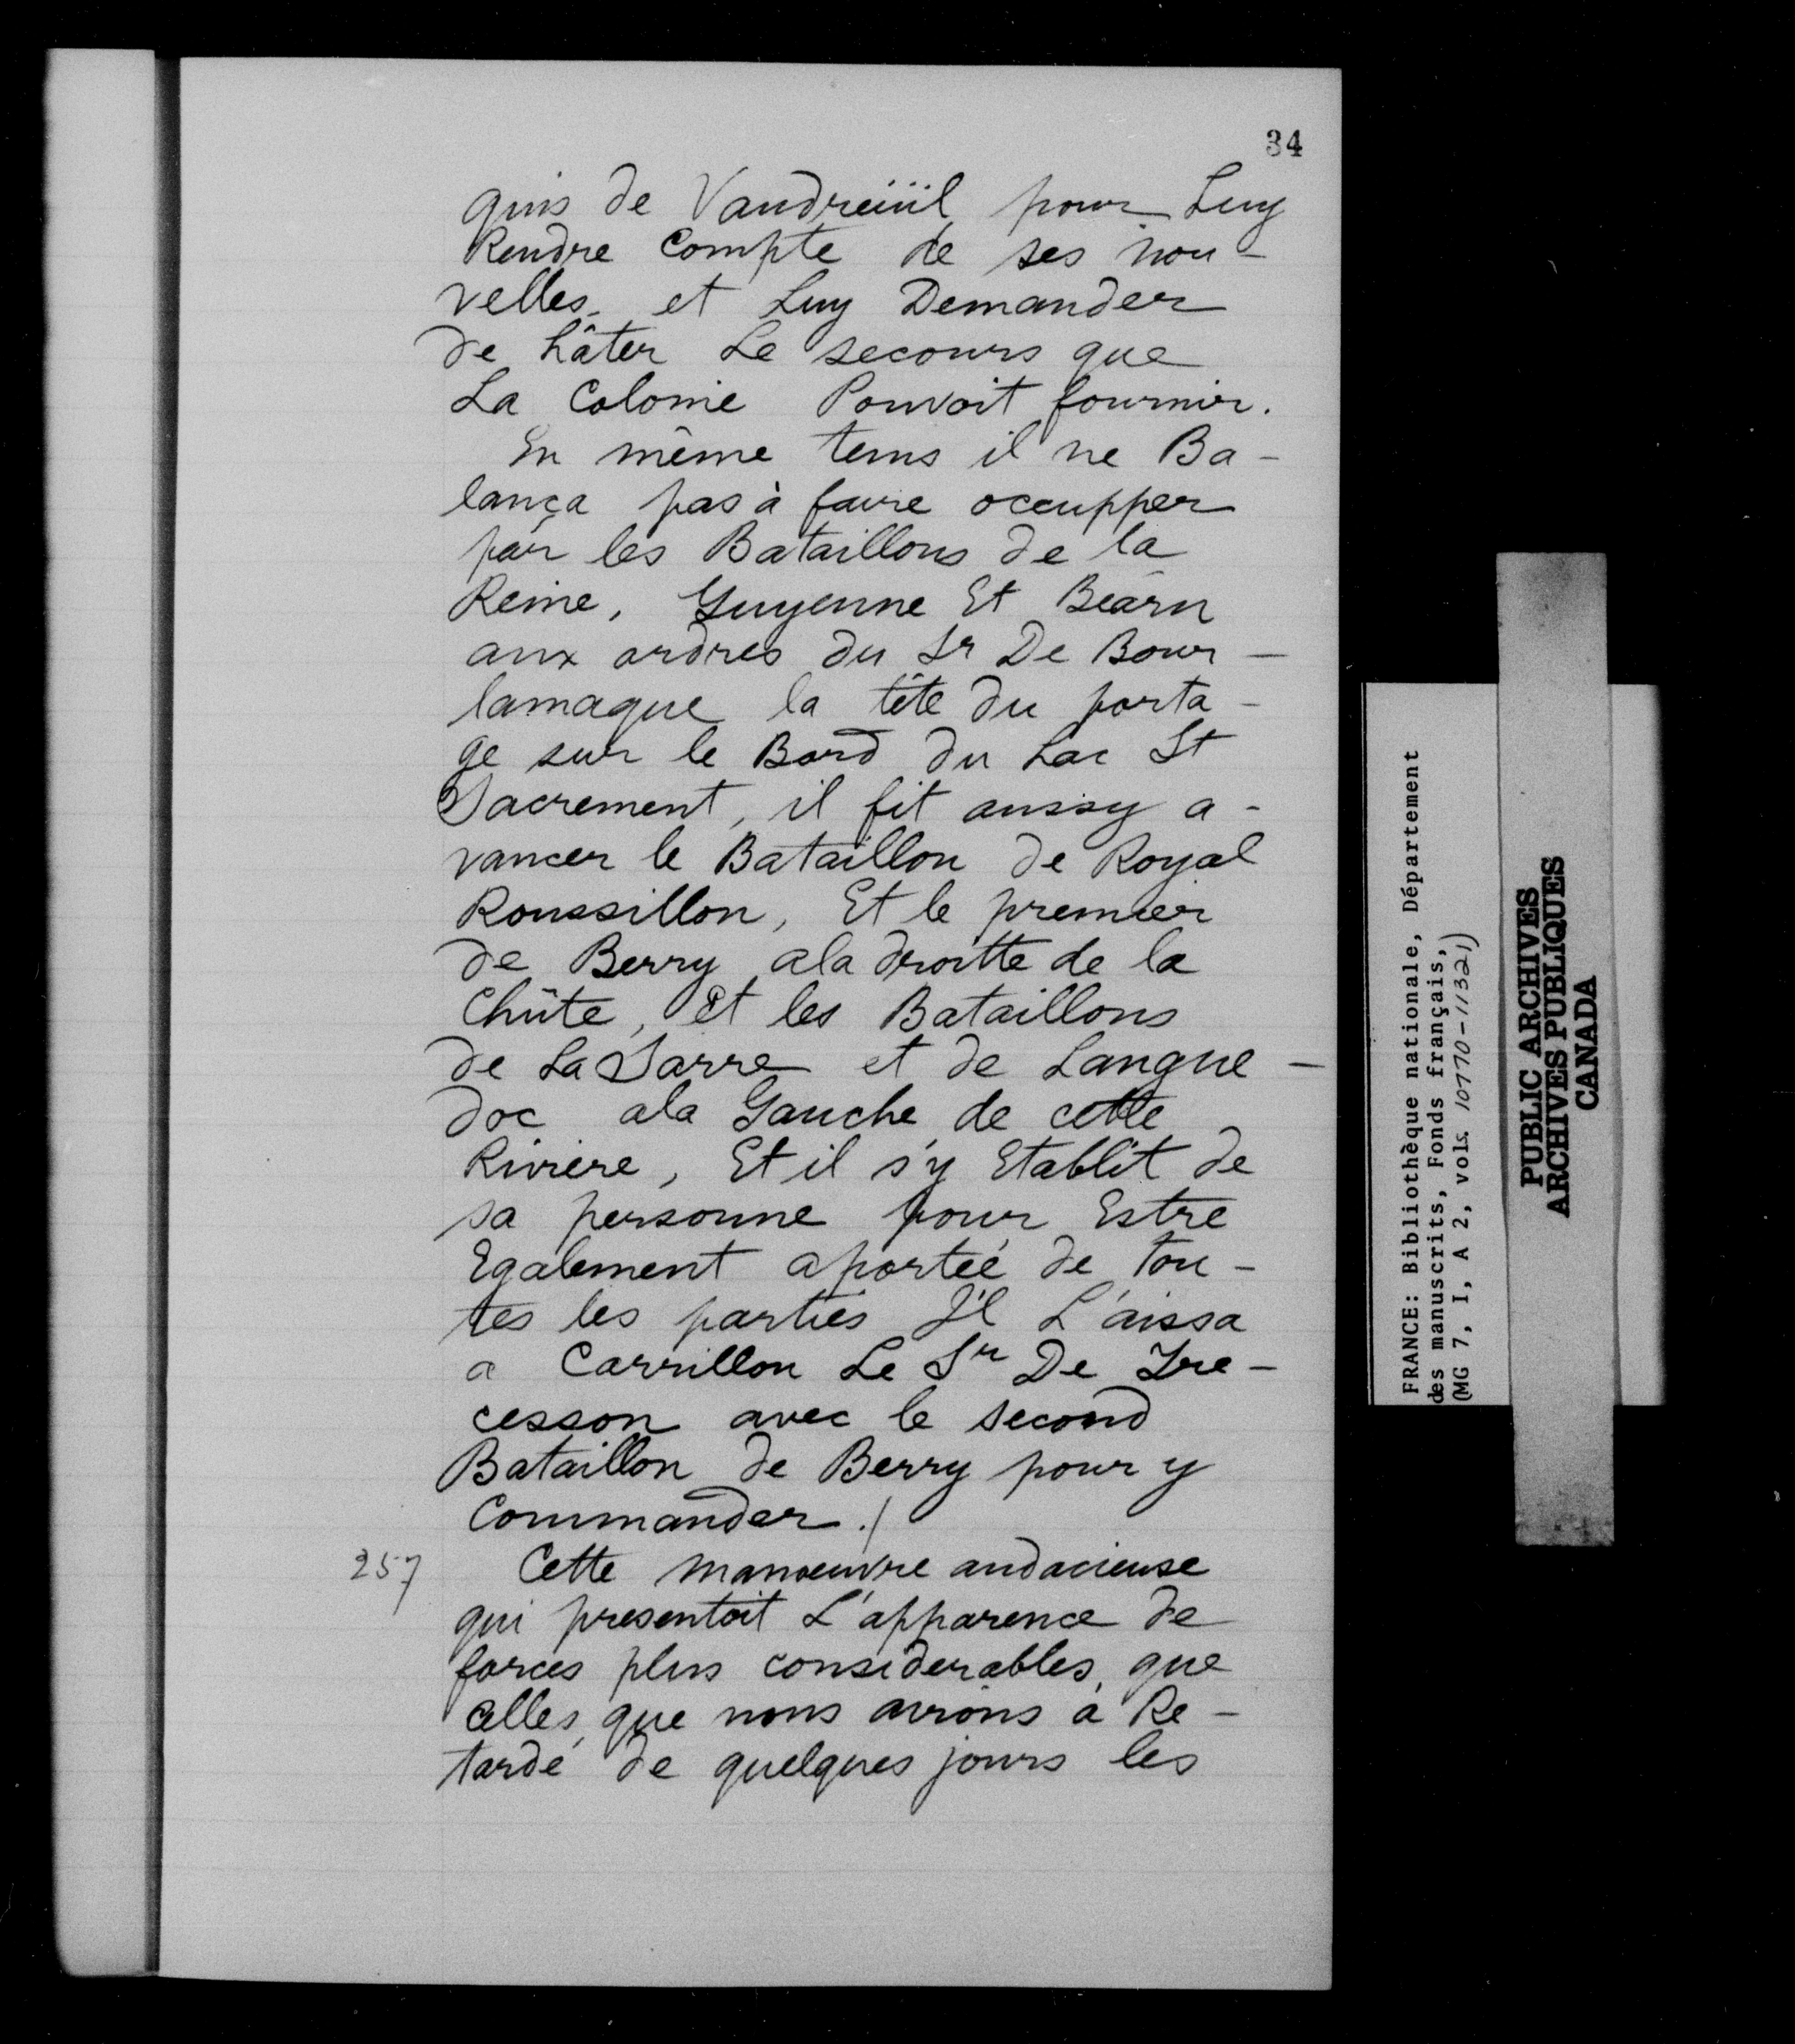 34
quis de Vaudreüil pour Luy
Rendre Compte de ses nou-
velles, et Luy Demander
de hâter Le secours que
La Colonie Pouvoit fournir.
En même tems il ne Ba-
lança pas à faire occupper
par les Bataillons de la
Reine, Guyenne Et Béarn
aux ordres du Sr De Bour-
lamaque la tête du porta-
ge sur le Bord du Lac St
Sacrement, il fit aussy a-
vancer le Bataillon de Royal
Roussillon, Et le premier
de Berry ala droitte de la
Chûte, Et les Bataillons
de La Sarre et de Langue-
doc ala Gauche de cette
Riviere, Et il s'y Etablit de
sa personne pour Estre
Egalement aportée de tou-
tes les parties Il L'aissa
a Carrillon Le Sr De Tre-
cesson avec le second
Bataillon de Berry pour y
Commander./
257 Cette manoeuvre audacieuse
qui presentoit L'apparence de
forces plus considerables, que
celles, que nous avions à Re-
tardé de quelques jours les
FRANCE: Bibliothèque nationale, Département
des manuscrits, Fonds français,
(MG 7, I, A 2, vols. 10770-11321)
PUBLIC ARCHIVES
ARCHIVES PUBLIQUES
CANADA